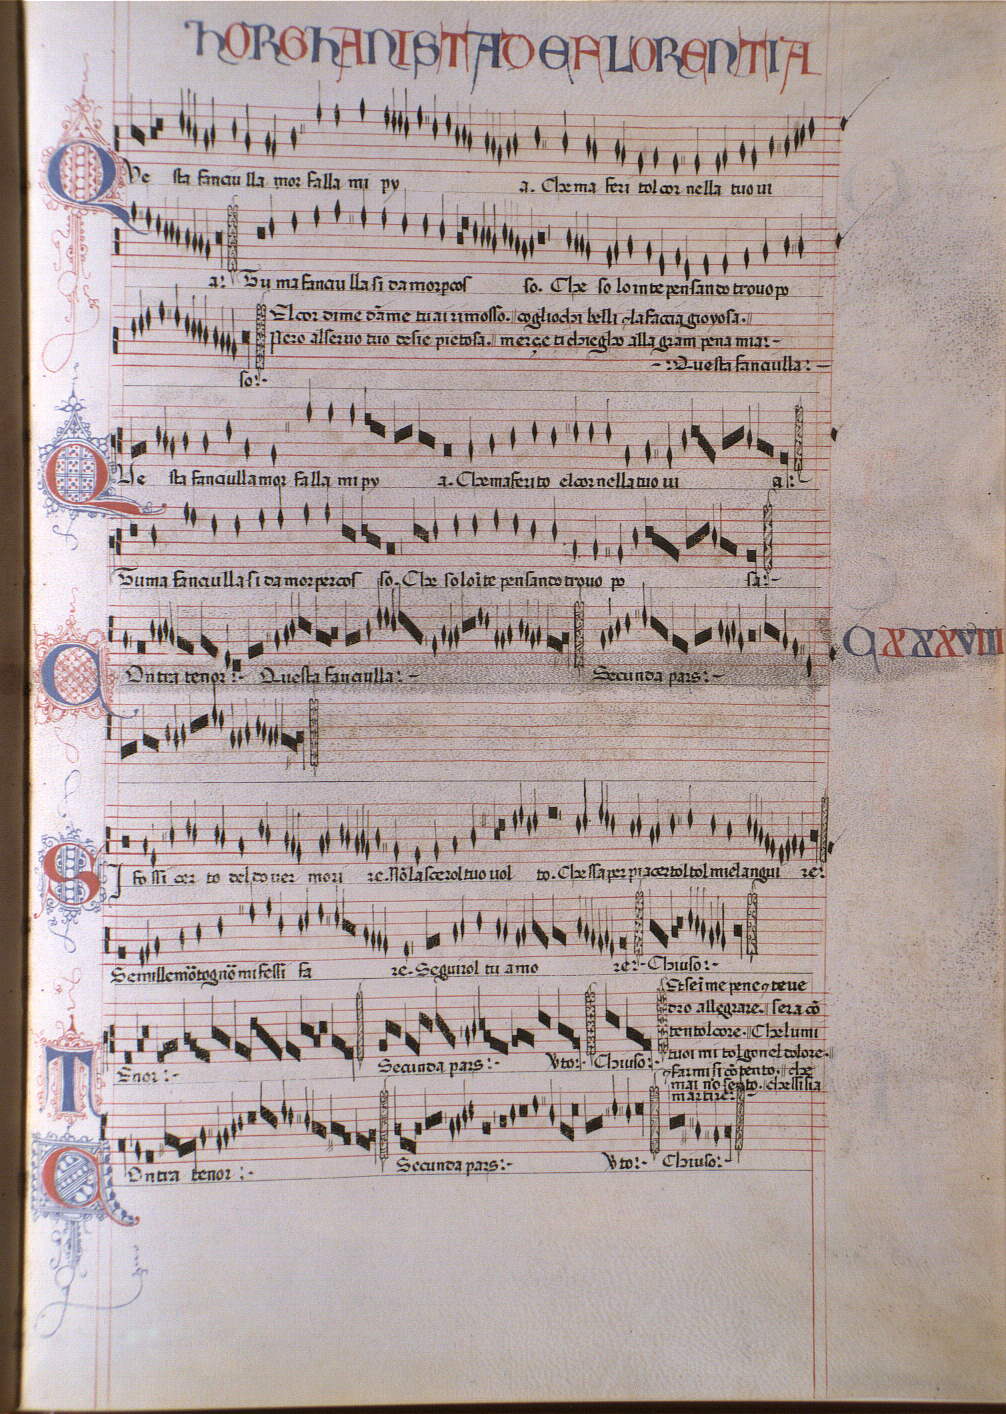 HORGHANISTA DE FLORENTIA
QVe sta fanciu lla mor falla mi py a. Che ma feri tol cor nella tuo ui
a: Tu ma fanciu lla si da mor pcos so. Che so lo inte pen san do trouo po
El cor di me dāme tu ai rimosso. cogliochi belli ella faccia gioyosa.
Pero al seruo tuo de sie pietosa. merçe ti chiegho alla gram pena mia:-
-:Questa fanciulla:-
so:-
QVe sta fanciulla mor fa lla mi py a. Che ma feri to el cor nella tuo ui a:
Tu ma fanciu lla si da mor per cos so. Che so lo ī te pen san do trouo po sa:-
COntra tenor:- Questa fanciulla:- Secunda pars:-
CXXXVIII
SI fo ssi cer to del do uer mori re. Nō la scerol tuo uol to. Che ssa per piacer tol tol miel angui re:
Se mille mō to gnō mi fessi fa re. Seguirol tu amo re:- Chiuso:-
Et sei me pene deue
dro allegrare. sera cō
tentol core. Che lumi
TEnor:- Secunda pars:- Vto:- Chiuso:- tuoi mi tolgonel dolore.
Farmi si cōpento. che
mai nō sento. chessi sia
martire:-
COntra tenor:- Secunda pars:- Vto:- Chiuso:-